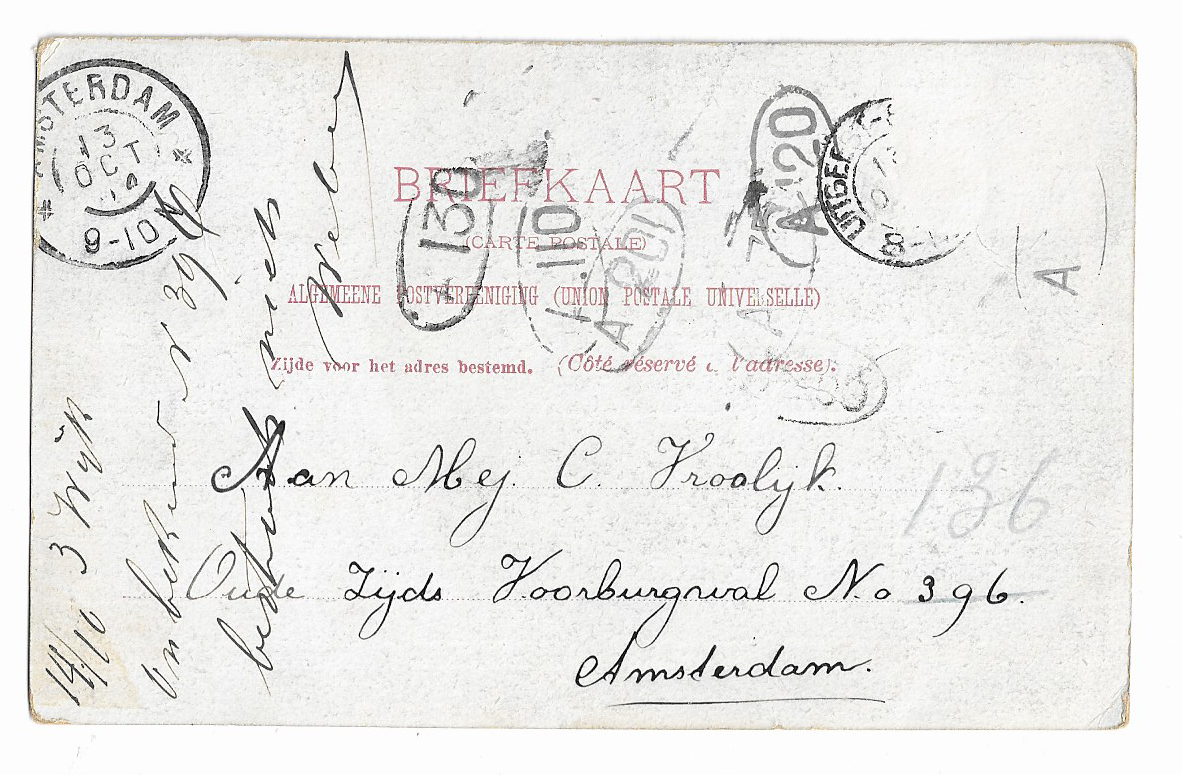 AMSTERDAM
13
OCT
9-10
BRIEFKAART
(CARTE POSTALE)
ALGEMEENE POSTVEREENIGING (UNION POSTALE UNIVERSELLE)
Zijde voor het adres bestemd. (Côté réservé à l'adresse).
130
A 110
A 201
A 120
A
A
Aan Mej. C. Vroolijk.
136
Oude Zijds Voorburgwal No 396.
Amsterdam.
14/10 3 Wijk
Onbekend N 396
bestaat niet